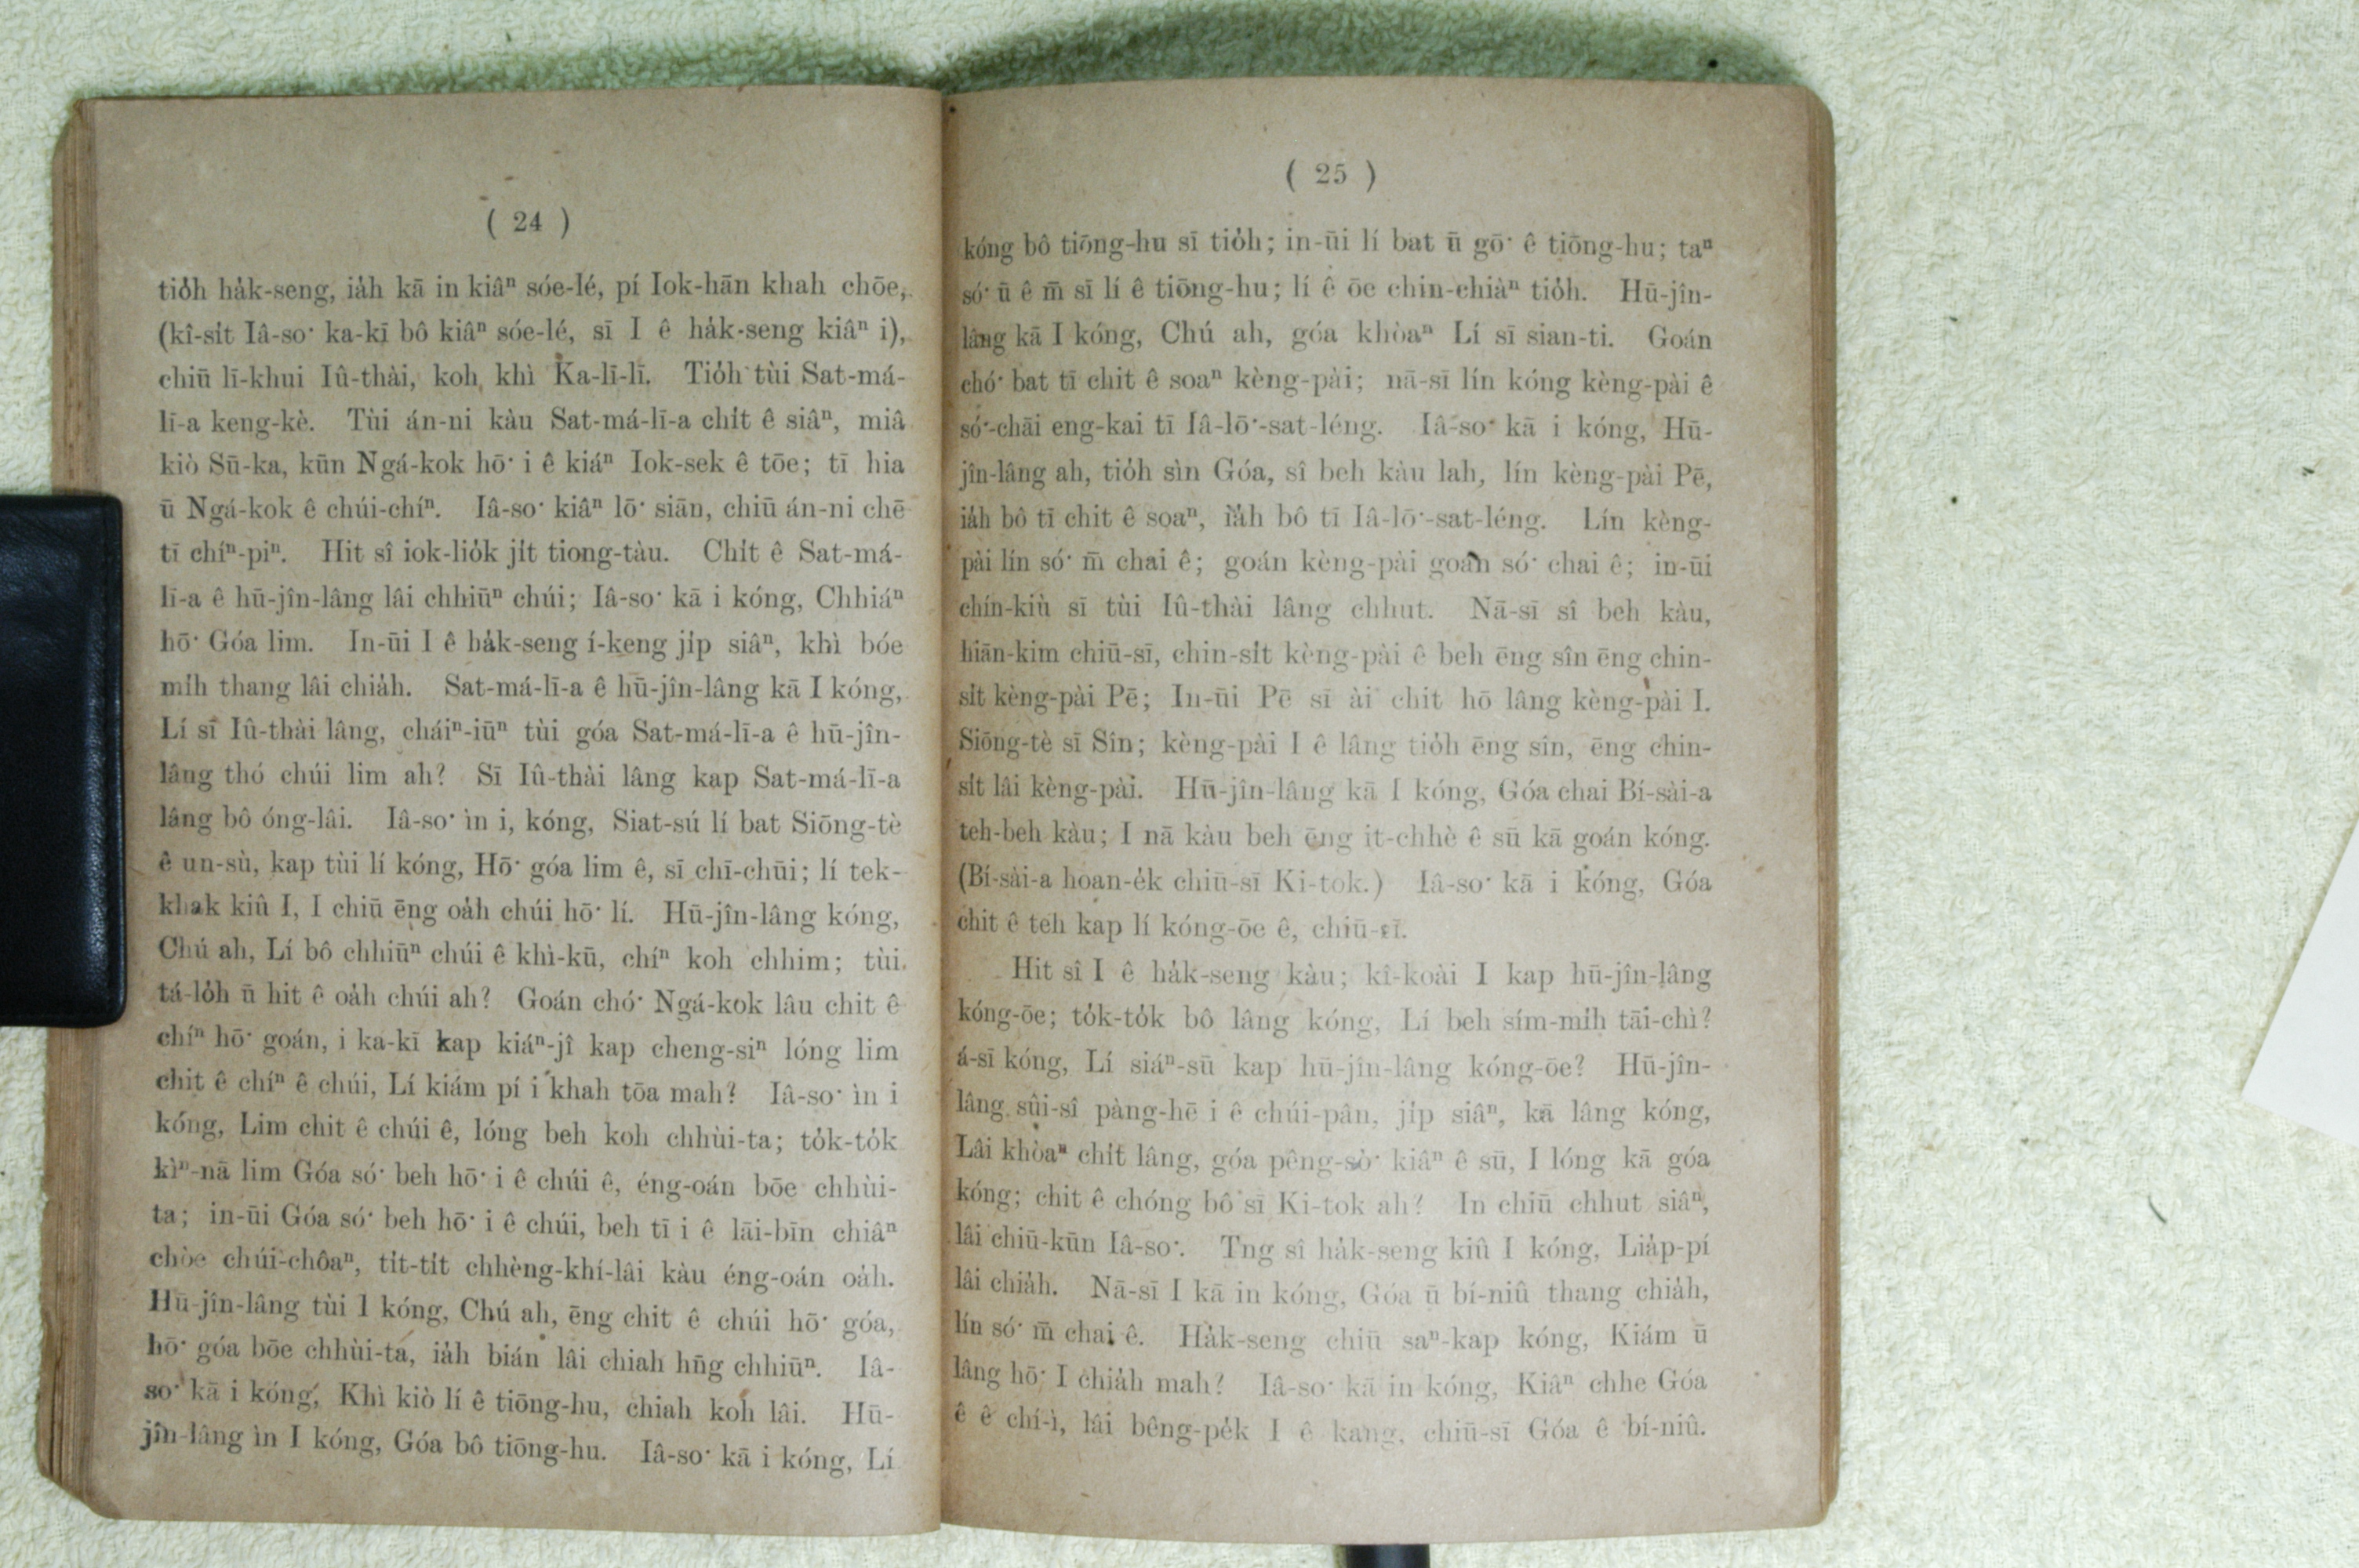 ( 24 )
tio̍h ha̍k-seng, ia̍h kā in kiâⁿ sóe-lé, pí Iok-hān khah chōe,
(kî-si̍t Iâ-so͘ ka-kī bô kiâⁿ sóe-lé, sī I ê ha̍k-seng kiâⁿ i),
chiū lī-khui Iû-thài, koh khì Ka-lī-lī. Tio̍h tùi Sat-má-
lī-a keng-kè. Tùi án-ni kàu Sat-má-lī-a chi̍t ê siâⁿ, miâ
kiò Sū-ka, kūn Ngá-kok hō͘ i ê kiáⁿ Iok-sek ê tōe; tī hia
ū Ngá-kok ê chúi-chíⁿ. Iâ-so͘ kiâⁿ lō͘ siān, chiū án-ni chē
tī chíⁿ-piⁿ. Hit sî iok-lio̍k ji̍t tiong-tàu. Chi̍t ê Sat-má-
lī-a ê hū-jîn-lâng lâi chhiūⁿ chúi; Iâ-so͘ kā i kóng, Chhiáⁿ
hō͘ Góa lim. In-ūi I ê ha̍k-seng í-keng ji̍p siâⁿ, khì bóe
mi̍h thang lâi chia̍h. Sat-má-lī-a ê hū-jîn-lâng kā I kóng,
Lí sī Iû-thài lâng, cháiⁿ-iūⁿ tùi góa Sat-má-lī-a ê hū-jîn-
lâng thó chúi lim ah? Sī Iû-thài lâng kap Sat-má-lī-a
lâng bô óng-lâi. Iâ-so͘ ìn i, kóng, Siat-sú lí bat Siōng-tè
ê un-sù, kap tùi lí kóng, Hō͘ góa lim ê, sī chī-chūi; lí tek-
khak kiû I, I chiū ēng oa̍h chúi hō͘ lí. Hū-jîn-lâng kóng,
Chú ah, Lí bô chhiūⁿ chúi ê khì-kū, chíⁿ koh chhim; tùi
tá-lo̍h ū hit ê oa̍h chúi ah? Goán chó͘ Ngá-kok lâu chit ê
chíⁿ hō͘ goán, i ka-kī kap kiáⁿ-jî kap cheng-siⁿ lóng lim
chit ê chíⁿ ê chúi, Lí kiám pí i khah tōa mah? Iâ-so͘ ìn i
kóng, Lim chit ê chúi ê, lóng beh koh chhùi-ta; to̍k-to̍k
kìⁿ-nā lim Góa só͘ beh hō͘ i ê chúi ê, éng-oán bōe chhùi-
ta; in-ūi Góa só͘ beh hō͘ i ê chúi, beh tī i ê lāi-bīn chiâⁿ
chòe chúi-chôaⁿ, ti̍t-ti̍t chhèng-khí-lâi kàu éng-oán oa̍h.
Hū-jîn-lâng tùi I kóng, Chú ah, ēng chit ê chúi hō͘ góa,
hō͘ góa bōe chhùi-ta, ia̍h bián lâi chiah hn̄g chhiūⁿ. Iâ-
so͘ kā i kóng, Khì kiò lí ê tiōng-hu, chiah koh lâi. Hū-
jîn-lâng ìn I kóng, Góa bô tiōng-hu. Iâ-so͘ kā i kóng, Lí
( 25 )
kóng bô tiōng-hu sī tio̍h; in-ūi lí bat ū gō͘ ê tiōng-hu; taⁿ
só͘ ū ê m̄ sī lí ê tiōng-hu; lí ê ōe chin-chiàⁿ tio̍h. Hū-jîn-
lâng kā I kóng, Chú ah, góa khòaⁿ Lí sī sian-ti. Goán
chó͘ bat tī chit ê soaⁿ kèng-pài; nā-sī lín kóng kèng-pài ê
só͘-chāi eng-kai tī Iâ-lō͘-sat-léng. Iâ-so͘ kā i kóng, Hū-
jîn-lâng ah, tio̍h sìn Góa, sî beh kàu lah, lín kèng-pài Pē,
ia̍h bô tī chit ê soaⁿ, ia̍h bô tī Iâ-lō͘-sat-léng. Lín kèng-
pài lín só͘ m̄ chai ê; goán kèng-pài goán só͘ chai ê; in-ūi
chín-kiù sī tùi Iû-thài lâng chhut. Nā-sī sî beh kàu,
hiān-kim chiū-sī, chin-si̍t kèng-pài ê beh ēng sîn ēng chin-
si̍t kèng-pài Pē; In-ūi Pē sī ài chit hō lâng kèng-pài I.
Siōng-tè sī Sîn; kèng-pài I ê lâng tio̍h ēng sîn, ēng chin-
si̍t lâi kèng-pài. Hū-jîn-lâng kā I kóng, Góa chai Bí-sài-a
teh-beh kàu; I nā kàu beh ēng it-chhè ê sū kā goán kóng.
(Bí-sài-a hoan-e̍k chiū-sī Ki-tok.) Iâ-so͘ kā i kóng, Góa
chit ê teh kap lí kóng-ōe ê, chiū-sī.
Hit sî I ê ha̍k-seng kàu; kî-koài I kap hū-jîn-lâng
kóng-ōe; to̍k-to̍k bô lâng kóng, Lí beh sím-mi̍h tāi-chì?
á-sī kóng, Lí siáⁿ-sū kap hū-jîn-lâng kóng-ōe? Hū-jîn-
lâng sûi-sî pàng-hē i ê chúi-pân, ji̍p siâⁿ, kā lâng kóng,
Lâi khòaⁿ chi̍t lâng, góa pêng-sò͘ kiâⁿ ê sū, I lóng kā góa
kóng; chit ê chóng bô sī Ki-tok ah? In chiū chhut siâⁿ,
lâi chiū-kūn Iâ-so͘. Tng sî ha̍k-seng kiû I kóng, Lia̍p-pí
lâi chia̍h. Nā-sī I kā in kóng, Góa ū bí-niû thang chia̍h,
lín só͘ m̄ chai ê. Ha̍k-seng chiū saⁿ-kap kóng, Kiám ū
lâng hō͘ I chia̍h mah? Iâ-so͘ kā in kóng, Kiâⁿ chhe Góa
ê ê chí-ì, lâi bêng-pe̍k I ê kang, chiū-sī Góa ê bí-niû.